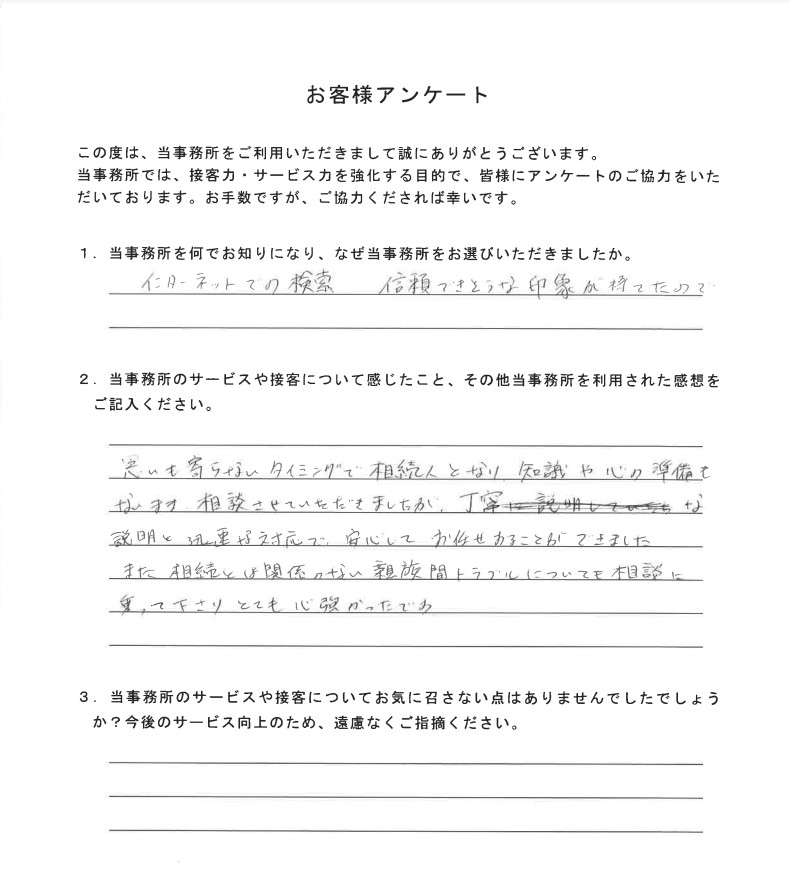 お客様アンケート
この度は、当事務所をご利用いただきまして誠にありがとうございます。
当事務所では、接客力・サービス力を強化する目的で、皆様にアンケートのご協力をいた
だいております。お手数ですが、ご協力くだされば幸いです。
１．当事務所を何でお知りになり、なぜ当事務所をお選びいただきましたか。
インターネットでの検索　信頼できそうな印象が持てたので
２．当事務所のサービスや接客について感じたこと、その他当事務所を利用された感想を
ご記入ください。
思いも寄らないタイミングで相続人となり 知識や心の準備も
ないまま 相談させていただきましたが、丁寧な
説明と迅速な対応で、安心して お任せすることができました
また 相続とは関係のない親族間トラブルについても相談に
乗って下さり とても心強かったです
３．当事務所のサービスや接客についてお気に召さない点はありませんでしたでしょう
か？今後のサービス向上のため、遠慮なくご指摘ください。